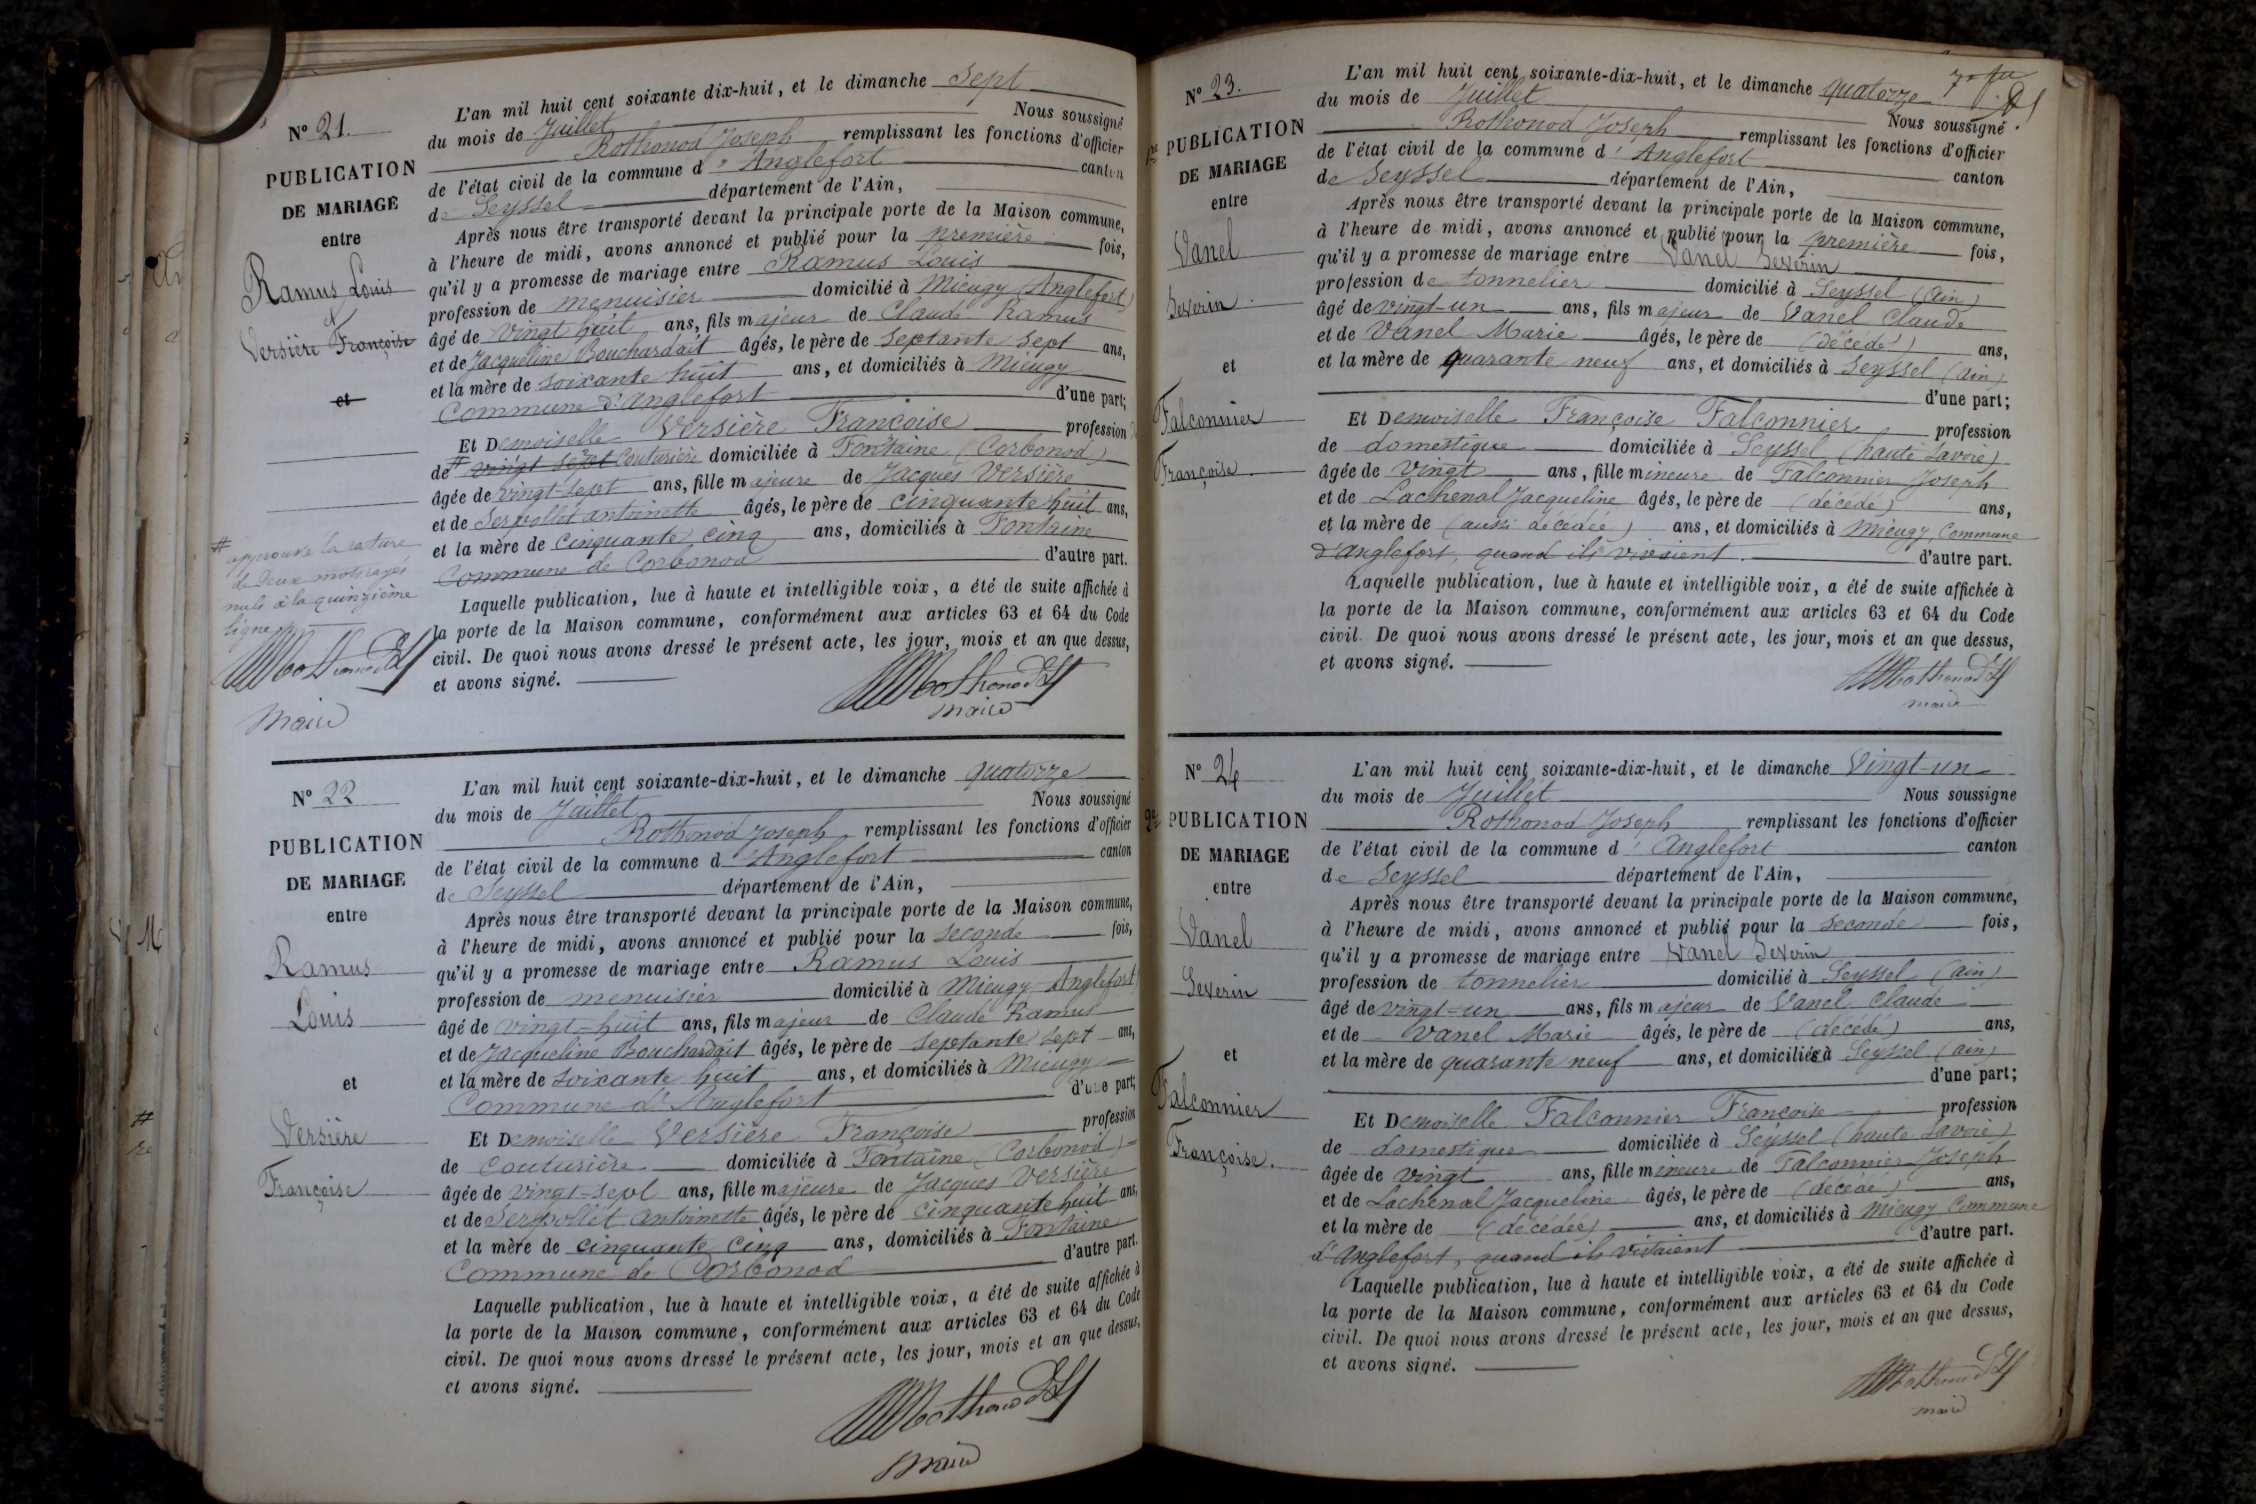 N° 21.
PUBLICATION
DE MARIAGE
entre
Ramus Louis
&
Versière Françoise
et
# approuvé la rature
de deux mots rayés
nuls à la quinzième
ligne
Maire
L'an mil huit cent soixante dix-huit, et le dimanche Sept
du mois de Juillet Nous soussigné
Rothonod Joseph remplissant les fonctions d'officier
de l'état civil de la commune d' Anglefort canton
de Seyssel département de l'Ain,
Après nous être transporté devant la principale porte de la Maison commune,
à l'heure de midi, avons annoncé et publié pour la première fois,
qu'il y a promesse de mariage entre Ramus Louis
profession de menuisier domicilié à Mieugy (Anglefort)
âgé de vingt huit ans, fils majeur de Claude Ramus
et de Jacqueline Bouchardait âgés, le père de septante sept ans,
et la mère de soixante huit ans, et domiciliés à Mieugy
Commune d'Anglefort d'une part;
Et Demoiselle Versière Françoise profession
de # vingt sept Couturière domiciliée à Fontaine (Corbonod)
âgée de vingt-sept ans, fille majeure de Jacques Versière
et de Serpollet antoinette âgés, le père de cinquante huit ans,
et la mère de cinquante cinq ans, domiciliés à Fontaine
Commune de Corbonod d'autre part.
Laquelle publication, lue à haute et intelligible voix, a été de suite affichée à
la porte de la Maison commune, conformément aux articles 63 et 64 du Code
civil. De quoi nous avons dressé le présent acte, les jour, mois et an que dessus,
et avons signé.
Rothonod
maire
N° 22
PUBLICATION
DE MARIAGE
entre
Ramus
Louis
et
Versière
Françoise
L'an mil huit cent soixante-dix-huit, et le dimanche quatorze
du mois de Juillet Nous soussigné
Rothonod Joseph remplissant les fonctions d'officier
de l'état civil de la commune d'Anglefort canton
de Seyssel département de l'Ain,
Après nous être transporté devant la principale porte de la Maison commune,
à l'heure de midi, avons annoncé et publié pour la seconde fois,
qu'il y a promesse de mariage entre Ramus Louis
profession de menuisier domicilié à Mieugy Anglefort
âgé de vingt-huit ans, fils majeur de Claude Ramus
et de Jacqueline Bouchardait âgés, le père de septante sept ans,
et la mère de soixante huit ans, et domiciliés à Mieugy
Commune d'Anglefort d'une part;
Et Demoiselle Versière Françoise profession
de couturière domiciliée à Fontaine (Corbonod)
âgée de vingt-sept ans, fille majeure de Jacques Versière
et de Serpollet antoinette âgés, le père de cinquante huit ans,
et la mère de cinquante cinq ans, domiciliés à Fontaine
Commune de Corbonod d'autre part.
Laquelle publication, lue à haute et intelligible voix, a été de suite affichée à
la porte de la Maison commune, conformément aux articles 63 et 64 du Code
civil. De quoi nous avons dressé le présent acte, les jour, mois et an que dessus,
et avons signé.
Rothonod
Maire
N° 23.
1re PUBLICATION
DE MARIAGE
entre
Vanel
Severin
et
Falconnier
Françoise
L'an mil huit cent soixante-dix-huit, et le dimanche quatorze
du mois de Juillet Nous soussigné
Rothonod Joseph remplissant les fonctions d'officier
de l'état civil de la commune d'Anglefort canton
de Seyssel département de l'Ain,
Après nous être transporté devant la principale porte de la Maison commune,
à l'heure de midi, avons annoncé et publié pour la première fois,
qu'il y a promesse de mariage entre Vanel Severin
profession de tonnelier domicilié à Seyssel (ain)
âgé de vingt-un ans, fils majeur de Vanel Claude
et de Vanel Marie âgés, le père de (décédé) ans,
et la mère de quarante neuf ans, et domiciliés à Seyssel (ain)
d'une part;
Et Demoiselle Françoise Falconnier profession
de domestique domiciliée à Seyssel (haute Savoie)
âgée de vingt ans, fille mineure de Falconnier Joseph
et de Lachenal Jacqueline âgés, le père de (décédé) ans,
et la mère de (aussi décédée) ans, et domiciliés à Mieugy Commune
d'Anglefort, quand ils vivaient. d'autre part.
Laquelle publication, lue à haute et intelligible voix, a été de suite affichée à
la porte de la Maison commune, conformément aux articles 63 et 64 du Code
civil. De quoi nous avons dressé le présent acte, les jour, mois et an que dessus,
et avons signé.
Rothonod
maire
N° 24
2e PUBLICATION
DE MARIAGE
entre
Vanel
Severin
et
Falconnier
Françoise.
L'an mil huit cent soixante-dix-huit, et le dimanche Vingt-un
du mois de Juillet Nous soussigné
Rothonod Joseph remplissant les fonctions d'officier
de l'état civil de la commune d'Anglefort canton
de Seyssel département de l'Ain,
Après nous être transporté devant la principale porte de la Maison commune,
à l'heure de midi, avons annoncé et publié pour la seconde fois,
qu'il y a promesse de mariage entre Vanel Severin
profession de tonnelier domicilié à Seyssel (ain)
âgé de vingt-un ans, fils majeur de Vanel Claude
et de Vanel Marie âgés, le père de (décédé) ans,
et la mère de quarante neuf ans, et domiciliés à Seyssel (ain)
d'une part;
Et Demoiselle Falconnier Françoise profession
de domestique domiciliée à Seyssel (haute Savoie)
âgée de vingt ans, fille mineure de Falconnier Joseph
et de Lachenal Jacqueline âgés, le père de (décédé) ans,
et la mère de (décédée) ans, et domiciliés à Mieugy Commune
d'Anglefort, quand ils vivaient d'autre part.
Laquelle publication, lue à haute et intelligible voix, a été de suite affichée à
la porte de la Maison commune, conformément aux articles 63 et 64 du Code
civil. De quoi nous avons dressé le présent acte, les jour, mois et an que dessus,
et avons signé.
Rothonod
maire